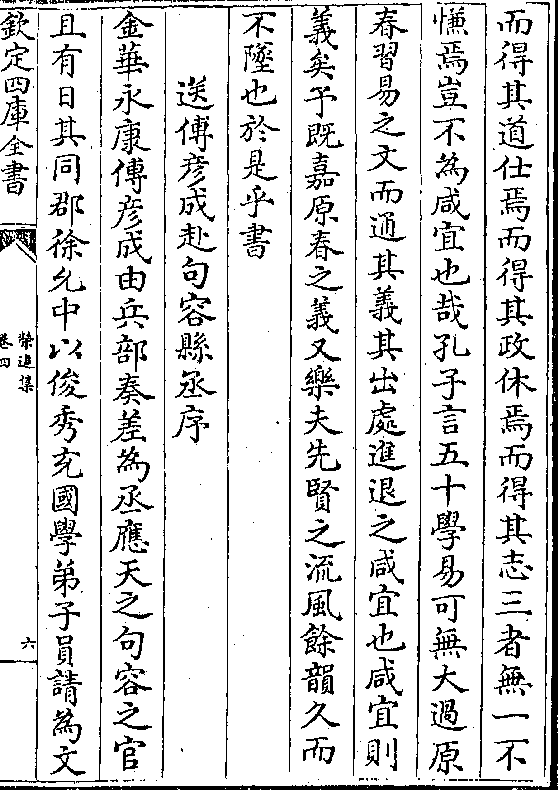 而得其道仕焉而得其政休焉而得其志三者無一不
慊焉豈不為咸宜也哉孔子言五十學易可無大過原
春習易之文而通其義其出處進退之咸宜也咸宜則
義矣予既嘉原春之義又樂夫先賢之流風餘韻久而
不墜也於是乎書
送傅彦成赴句容縣丞序
金華永康傅彦成由兵部奏差為丞應天之句容之官
且有日其同郡徐允中以俊秀充國學弟子員請為文
欽定四庫全書
榮進集
卷四
六